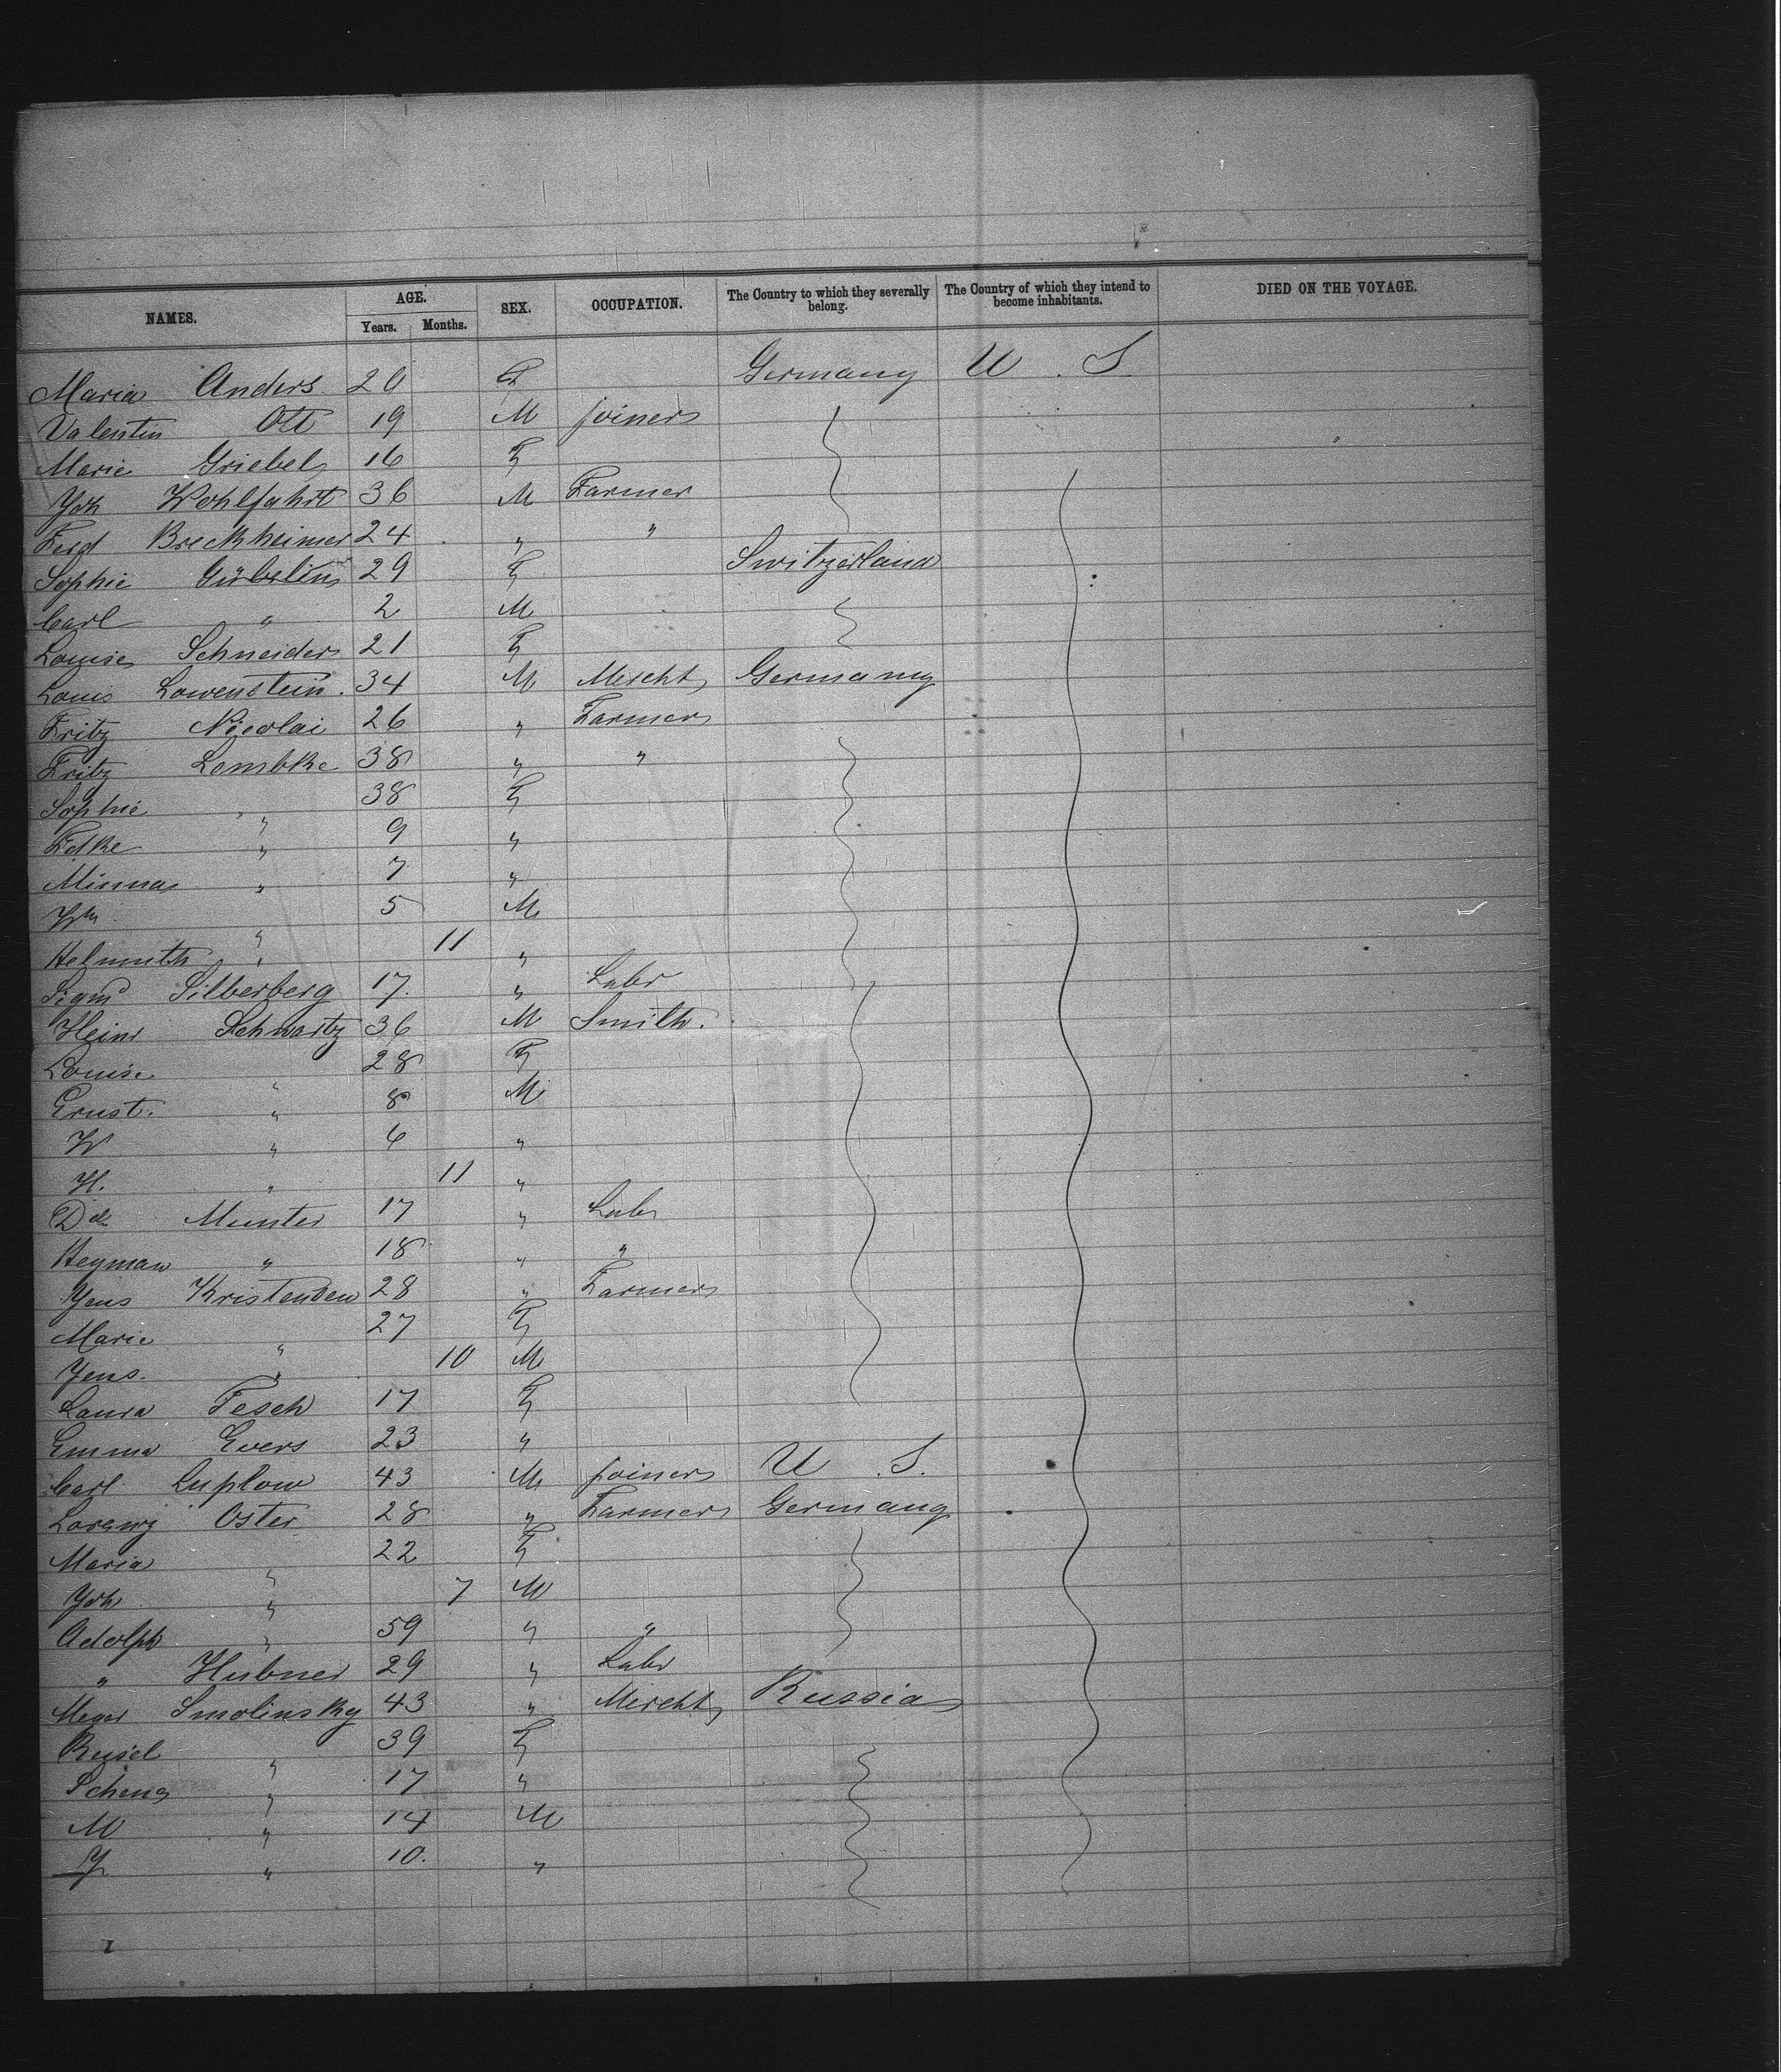 NAMES. AGE. SEX. OCCUPATION. The Country to which they severally belong. The Country of which they intend to become inhabitants. DIED ON THE VOYAGE.
Years. Months.
Maria Anders 20 F Germany U. S
Valentin Ott 19 M joiner
Marie Griebel 16 F
Joh Wohlfahrt 36 M Farmer
Ferd Breckheimer 24 " "
Sophie Gübelin 29 F Switzerland
Carl " 2 M
Louise Schneider 21 F
Louis Lowenstein. 34 M Mercht Germany
Fritz Nicolai 26 " Farmer
Fritz Lembke 38 " "
Sophie " 38 F
" 9 "
Minna " 7 "
Wm " 5 M
Helmuth " 11 "
Sigmd Silberberg 17. " Labr
Heinr Schwartz 36 M Smith.
Louise " 28 F
Ernst. " 8 M
W " 6 "
H. " 11 "
Munter 17 " Labr
Heyman " 18 " "
Jens 28 " Farmer
Marie " 27 F
Jens. " 10 M
Laura Tesch 17 F
Emma Evers 23 "
Carl Luplow 43 M joiner U. S.
Lorenz Oster 28 " Farmer Germany
Maria " 22 F
Joh " 7 M
Adolph " 59 " "
" Hubner 29 " Labr
Meyer Smolinsky 43 " Mercht Russia
" 39 F
" 17 "
M " 14 M
J " 10. "